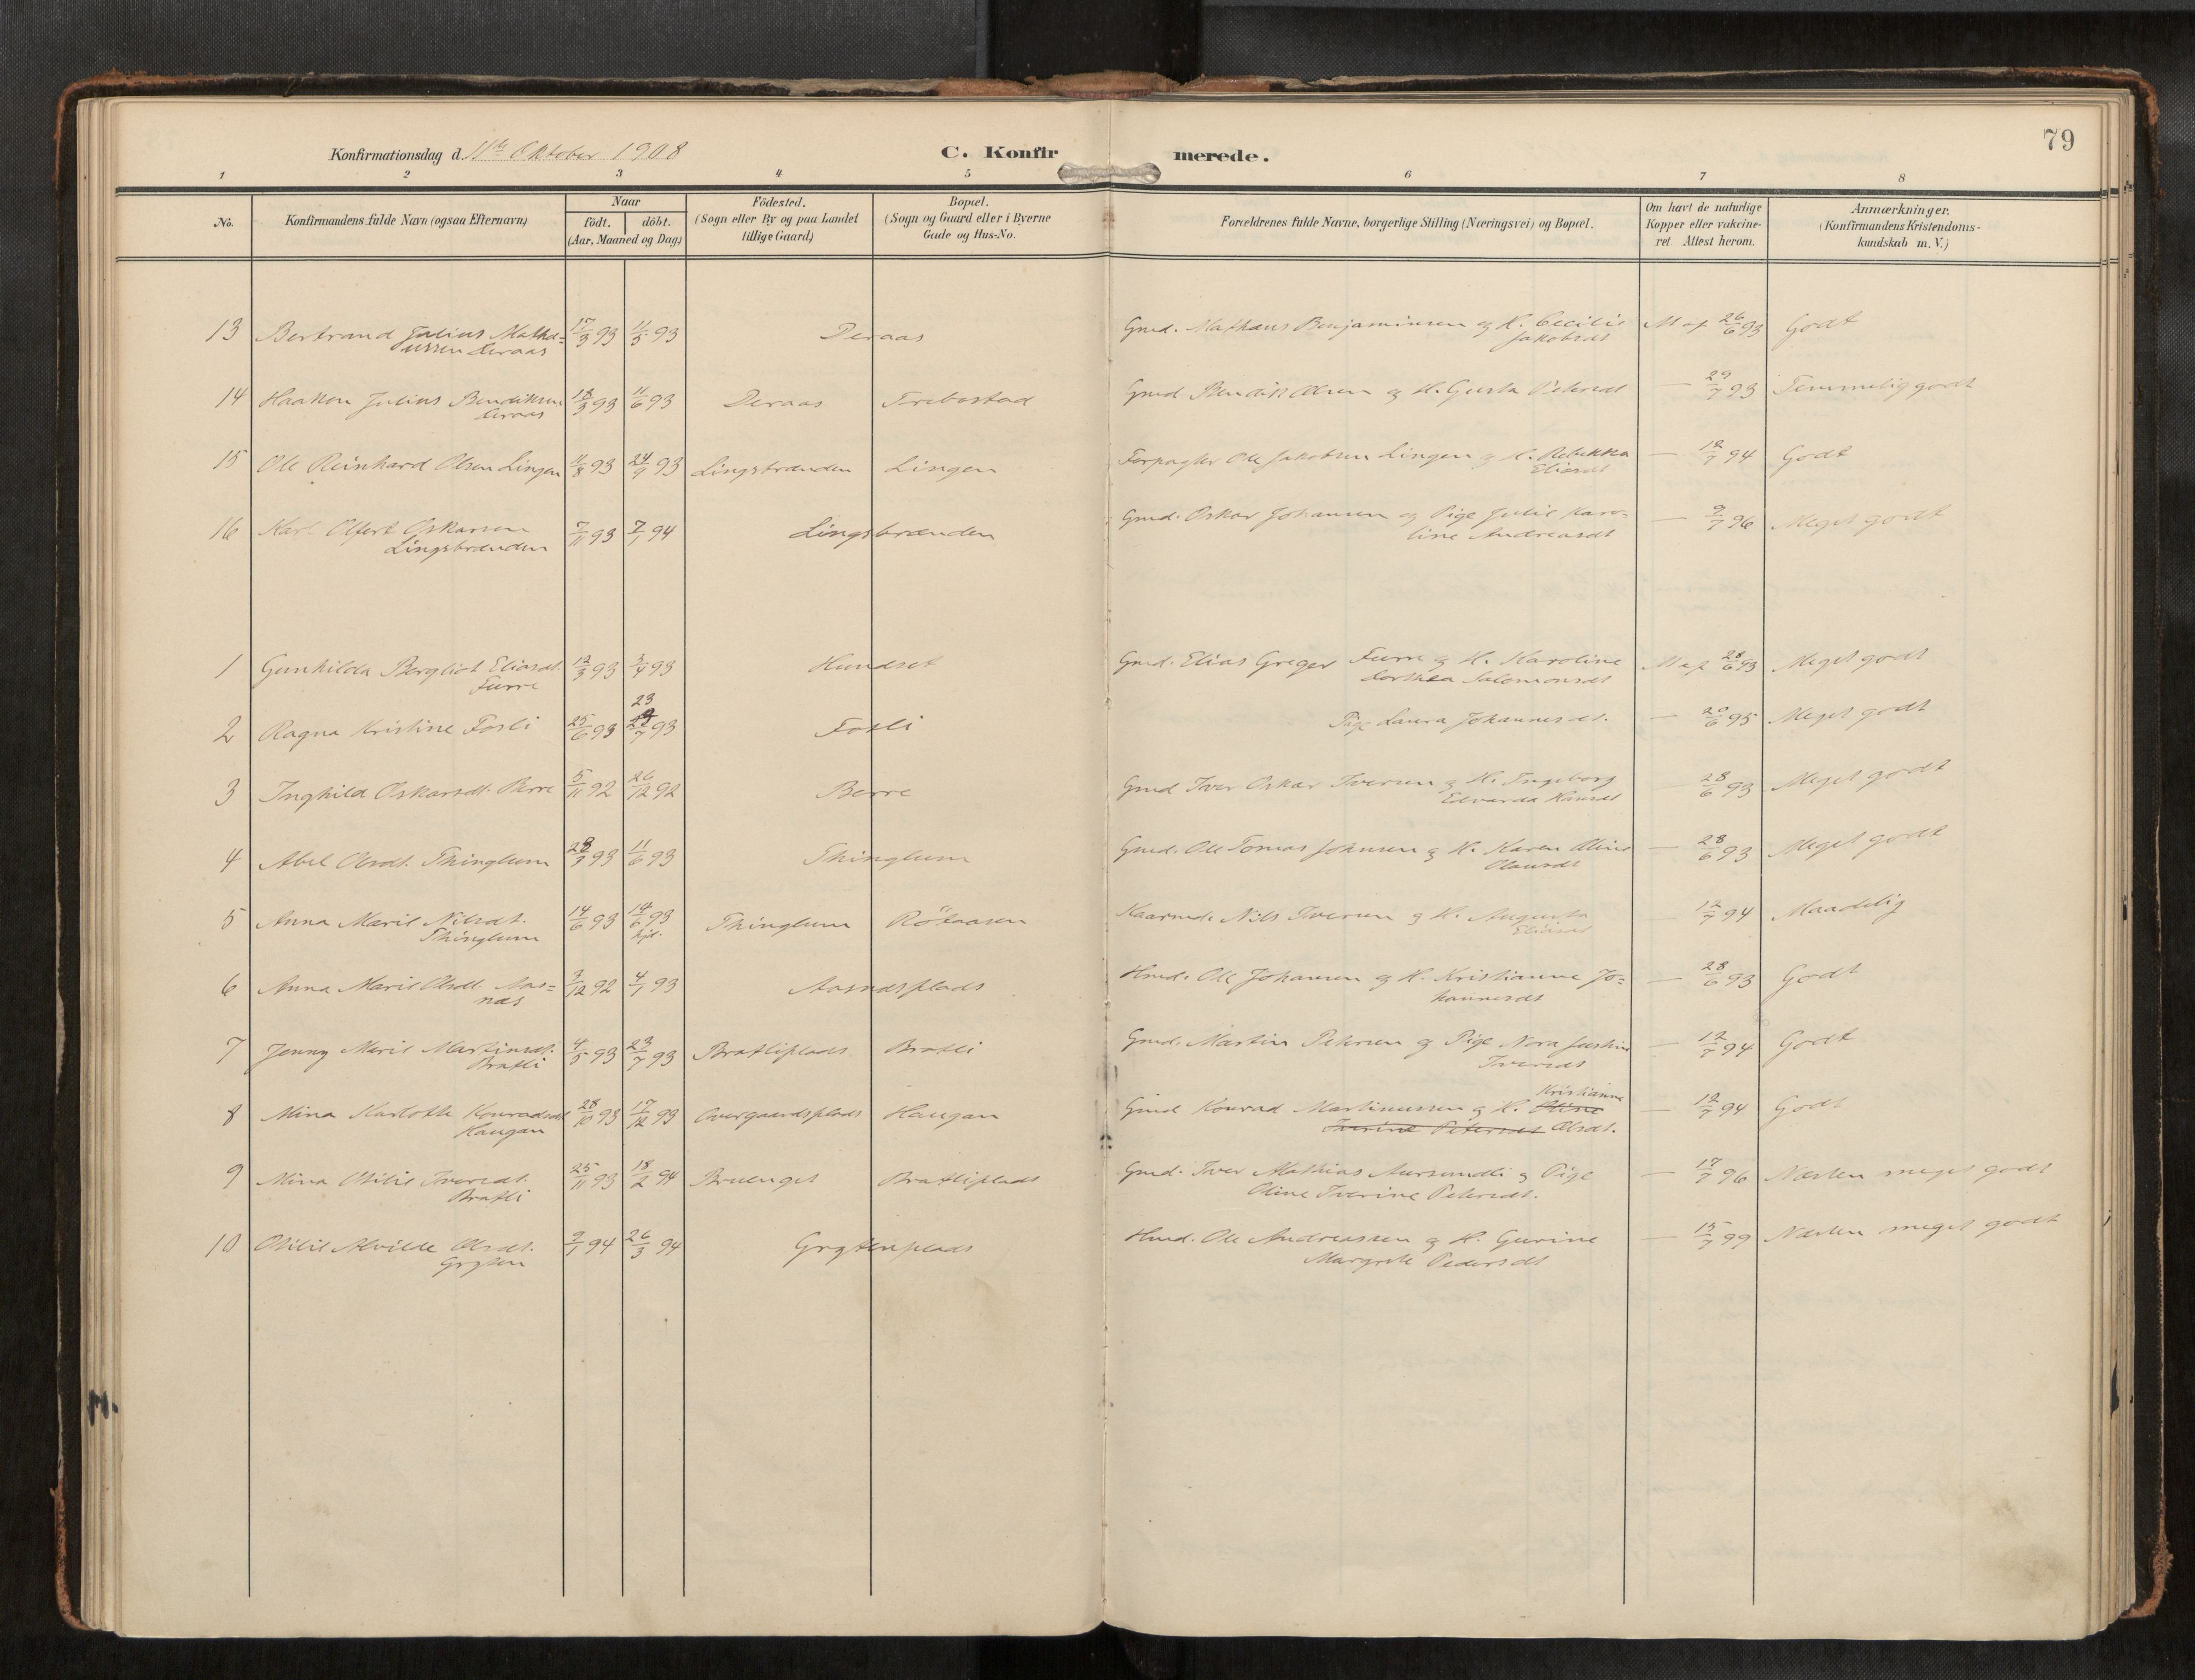 79
Konfirmationsdag d. 11te Oktober 1908 C. Konfirmerede.
1 2 3 4 5 6 7 8
No. Konfirmandens fulde Navn (ogsaa Efternavn) Naar Födested. Bopæl. Forældrenes fulde Navne, borgerlige Stilling (Næringsvei) og Bopæl. Om havt de naturlige Anmærkninger.
födt. döbt. (Sogn eller By og paa Landet (Sogn og Gaard eller i Byerne Kopper eller vakcine- (Konfirmandens Kristendoms-
(Aar, Maaned og Dag) tillige Gaard) Gade og Hus-No. ret Attest herom. kundskab m. V.)
13 Bertrand Julius Matha= 17/3 93 11/5 93 Deraas Gmd. Mathæus Benjaminsen og H. Cecilie M af 26/6 93 Godt
ussen Deraas Jakobsdt
14 Haakon Julius Bendiksen 18/3 93 11/6 93 Deraas Trebostad Gmd Bendik Olsen og H. Gusta Petersdt — 29/7 93 Temmelig godt
Deraas
15 Ole Reinhard Olsen Lingen 11/8 93 24/9 93 Lingsbrænden Lingen Forpagter Ole Jakobsen Lingen og H. Rebekka — 12/7 94 Godt
Eliasdt
16 Karl Olfert Oskarsen 7/11 93 7/1 94 Lingsbrænden Gmd. Oskar Johansen og Pige Julie Karo- — 9/7 96 Meget godt
Lingsbrænden line Andreasdt
1 Gunhilda Bergliot Eliasdt. 12/3 93 3/4 93 Hundset Gmd. Elias Greger Furre og H. Karoline M af 28/6 93 Meget godt
Furre Dorthea Salomonsdt
23
2 Ragna Kristine Fosli 25/6 93 /7 93 Fosli Pige Laura Johannesdt. — 20/6 95 Meget godt
3 Inghild Oskarsdt. Berre 5/11 92 26/12 92 Berre Gmd Iver Oskar Iversen og H. Ingeborg 28/6 93 Meget godt
Edvarda Hansdt
4 Abel Olsdt. Thinglum 28/3 93 11/6 93 Thinglum Gmd. Ole Tomas Johnsen og H. Karen Oline — 28/6 93 Meget godt
Olausdt
5 Anna Marie Nilsdt. 14/6 93 14/6 93 Thinglum Rötaasen Kaarmd. Nils Iversen og H. Augusta 12/7 94 Maadelig
Thinglum hjd. Eliasdt
6 Anna Marie Olsdt. Aas= 3/12 92 4/1 93 Aasnæsplads Hmd. Ole Johansen og H. Kristianne Jo= — 28/6 93 Godt
næs hannesdt
7 Jenny Marie Martinsdt. 4/5 93 23/7 93 Bratliplads Bratli Gmd. Martin Petersen og Pige Nora Justine — 12/7 94 Godt
Bratli Iversdt
Kristianne
8 Mina Karlotte Konradsdt 28/10 93 17/12 93 Overgaardsplads Haugan Gmd Konrad Martinussen og H. Oline — 12/7 94 Godt
Haugan Iverine Petersdt Olsdt.
9 Mina Otilie Iversdt. 25/11 93 18/2 94 Bruenget Bratliplads Gmd. Iver Mathias Aursundli og Pige — 17/7 96 Næsten meget godt
Bratli Oline Iverine Petersdt.
10 Otilie Alvilde Olsdt. 9/1 94 26/3 94 Grytenplads Hmd. Ole Andreassen og H. Gurine — 15/7 99 Næsten meget godt
Gryten Margrete Pedersdt